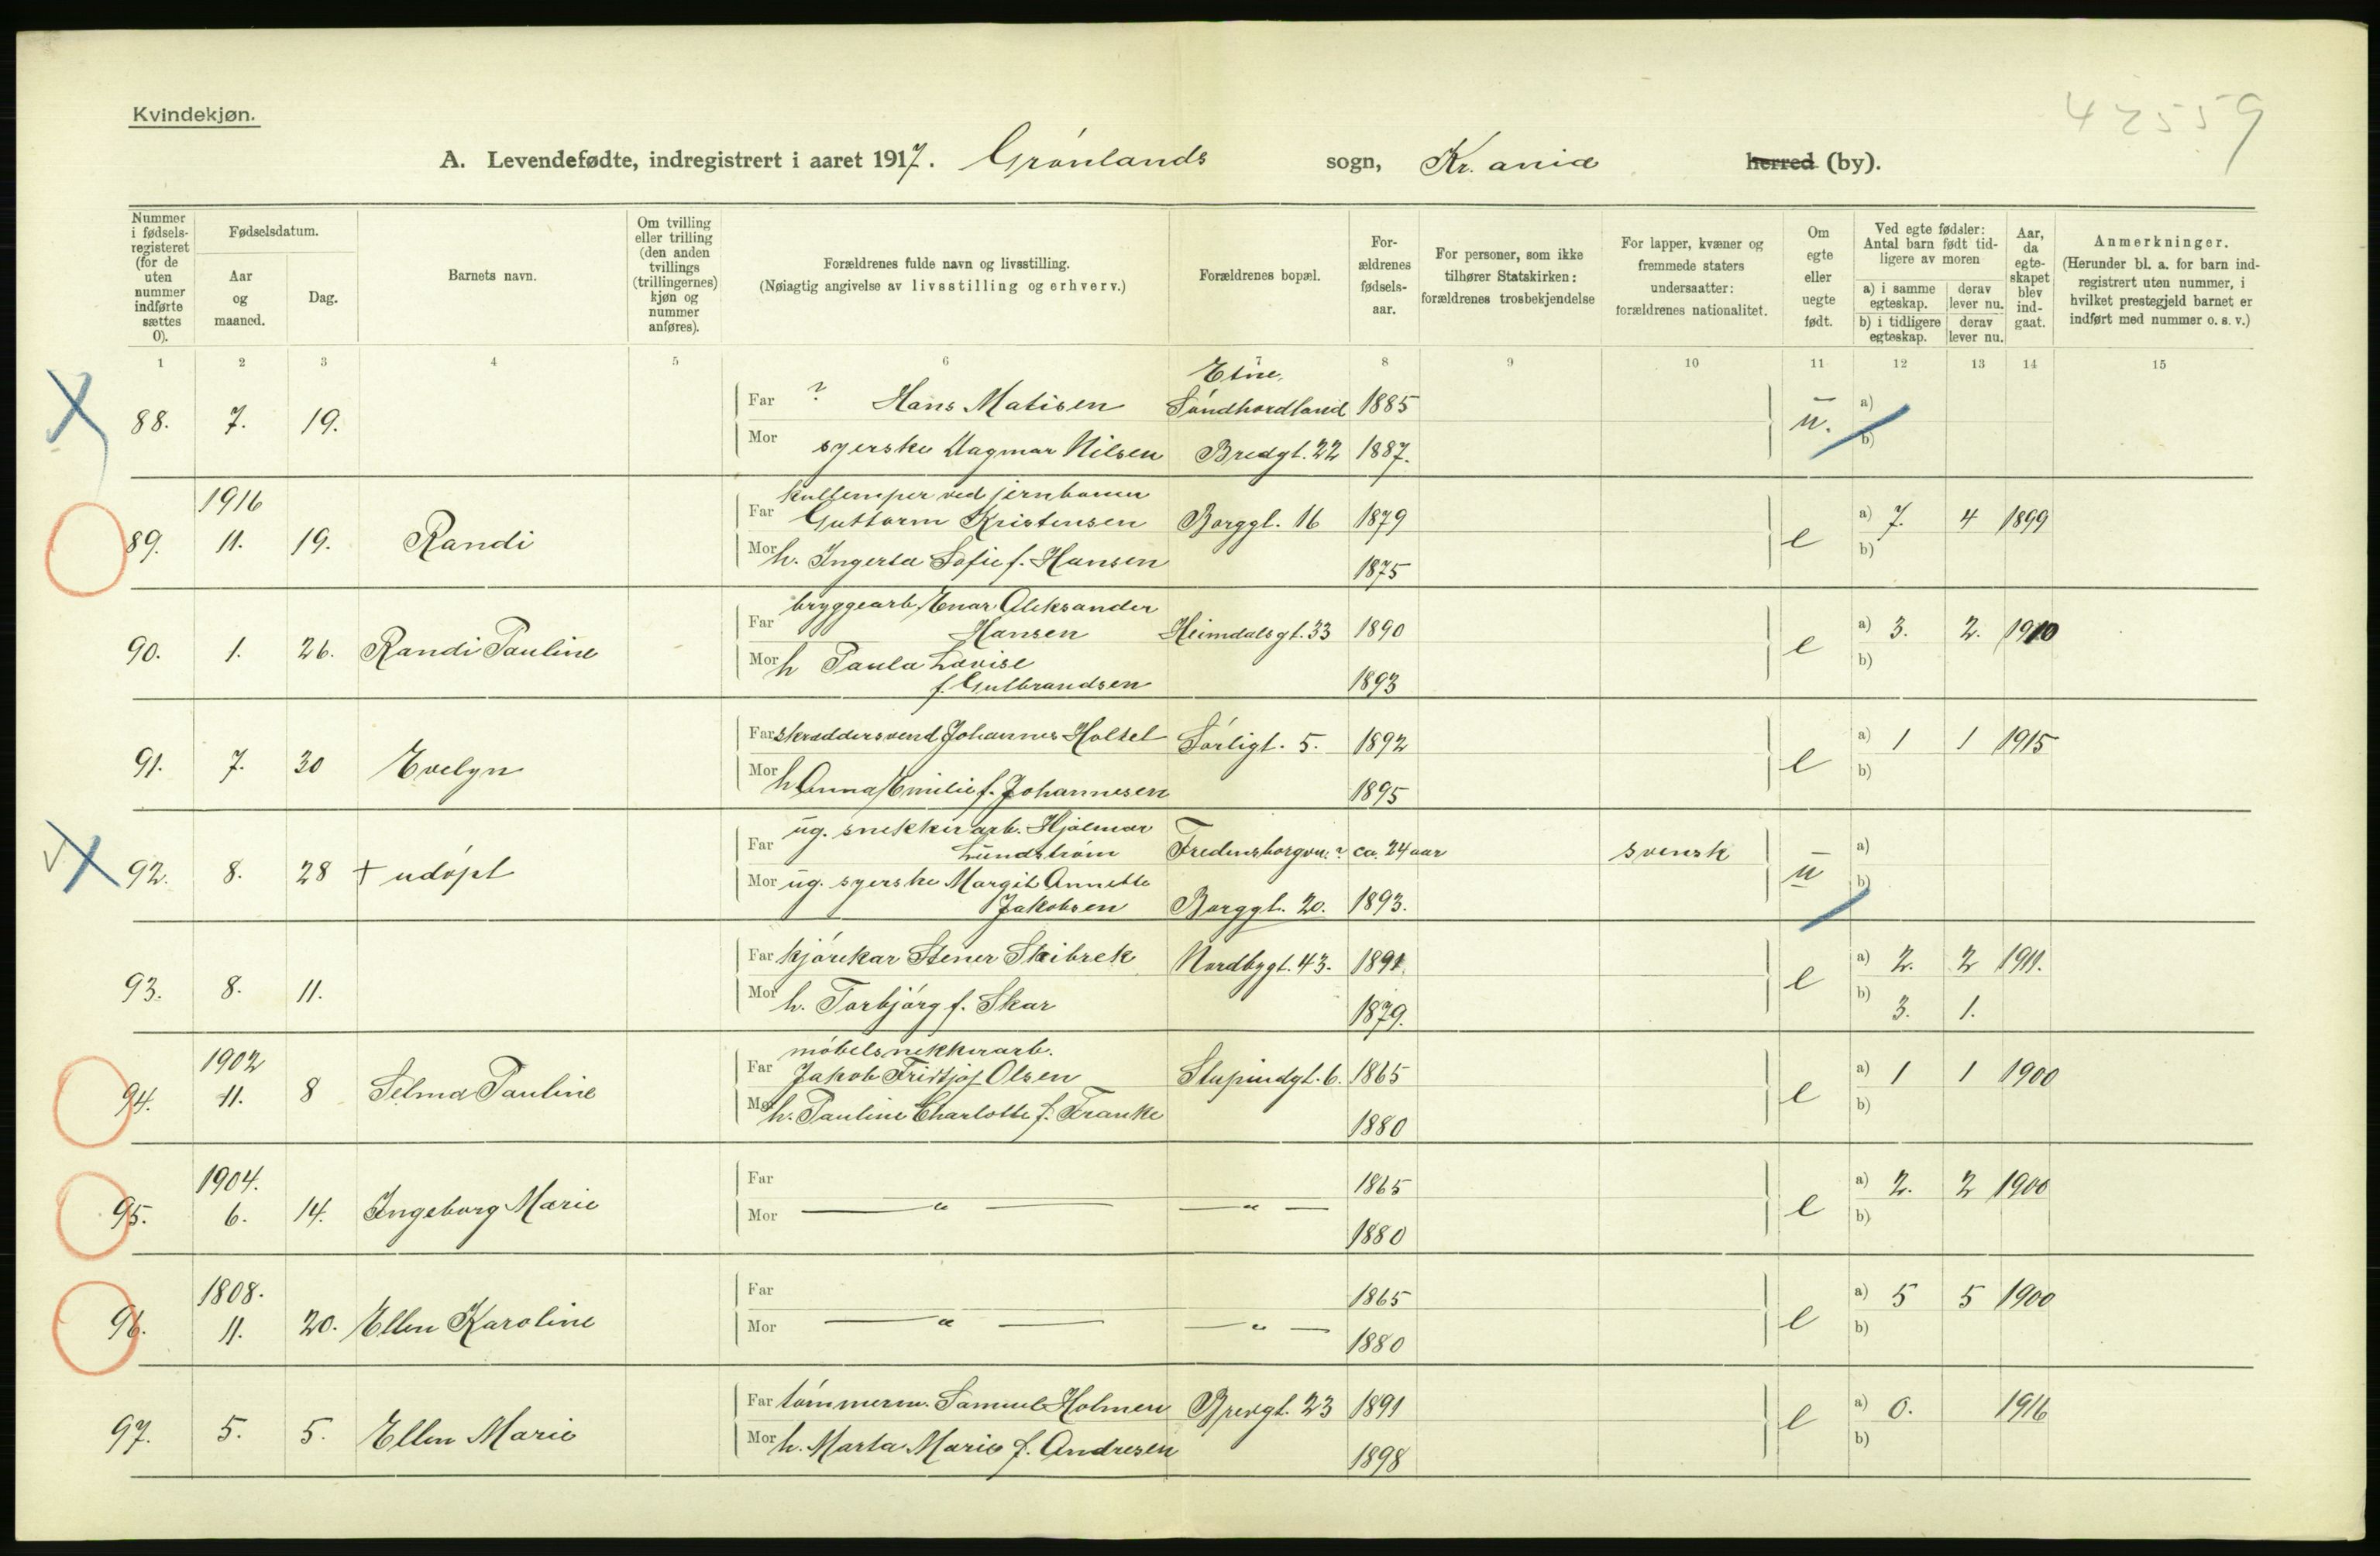 Kvindekjøn.
42559
A. Levendefødte, indregistrert i aaret 1917. Grønlands sogn, Kr.ania herred (by).
Nummer i fødselsregisteret (for de uten nummer indførte sættes 0).
Fødselsdatum.
Aar og maaned.
Dag.
Barnets navn.
Om tvilling eller trilling (den anden tvillings (trillingernes) kjøn og nummer anføres).
Forældrenes fulde navn og livsstilling.
(Nøiagtig angivelse av livsstilling og erhverv.)
Forældrenes bopæl.
Forældrenes fødselsaar.
For personer, som ikke tilhører Statskirken: forældrenes trosbekjendelse
For lapper, kvæner og fremmede staters undersaatter: forældrenes nationalitet.
Om egte eller uegte født.
Ved egte fødsler: Antal barn født tidligere av moren
a) i samme egteskap. derav lever nu.
b) i tidligere egteskap. derav lever nu.
Aar, da egteskapet blev indgaat.
Anmerkninger.
(Herunder bl. a. for barn indregistrert uten nummer, i hvilket prestegjeld barnet er indført med nummer o. s. v.)
1 2 3 4 5 6 7 8 9 10 11 12 13 14 15
Etne,
Far ? Hans Matisen Søndhordland 1885
88. 7. 19. u. a) b)
Mor syerske Dagmar Nilsen Bredgt. 22 1887.
1916 kullemper ved jernbanen
Far Guttorm Kristensen Borggt. 16 1879 a) 7. 4 1899
89. 11. 19. Randi e b)
Mor h. Ingerta Sofie f. Hansen 1875
bryggearb. Einar Aleksander
Far Hansen Heimdalsgt. 33 1890 a) 3. 2. 1910
90. 1. 26. Randi Pauline e b)
Mor h Paula Lovise
f. Gulbrandsen 1893
Far skræddersvend Johannes Holsel Sørligt. 5. 1892 a) 1 1 1915
91. 7. 30 Evelyn e b)
Mor h Anna Emilie f. Johannesen 1895
ug. snekkerarb. Hjalmar
Far Lundstrøm Fredensborgvn. ? ca. 24 aar svensk a)
92. 8. 28 + udøpt u b)
Mor ug. syerske Margit Annette
Jakobsen Borggt. 20. 1893.
Far kjørekar Stener Skibrek Nordbygt. 43. 1891 a) 2. 2 1911.
93. 8. 11. e
Mor h. Torbjørg f. Skar 1879. b) 3. 1.
1902 møbelsnekkerarb.
Far Jakob Fridtjof Olsen Stupindgt. 6. 1865 a) 1 1 1900
94. 11. 8 Selma Pauline e b)
Mor h. Pauline Charlotte f. Franke 1880
1904. Far 1865 a) 2. 2 1900
95. 6. 14. Ingeborg Marie — " — — " — e b)
Mor 1880
1808. Far 1865 a) 5 5 1900
96. 11. 20. Ellen Karoline — " — — " — e b)
Mor 1880
Far tømmerm. Samuel Holmen Brevgt. 23 1891 a) 0. 1916
97. 5. 5. Ellen Marie e b)
Mor h. Marta Marie f. Andresen 1898